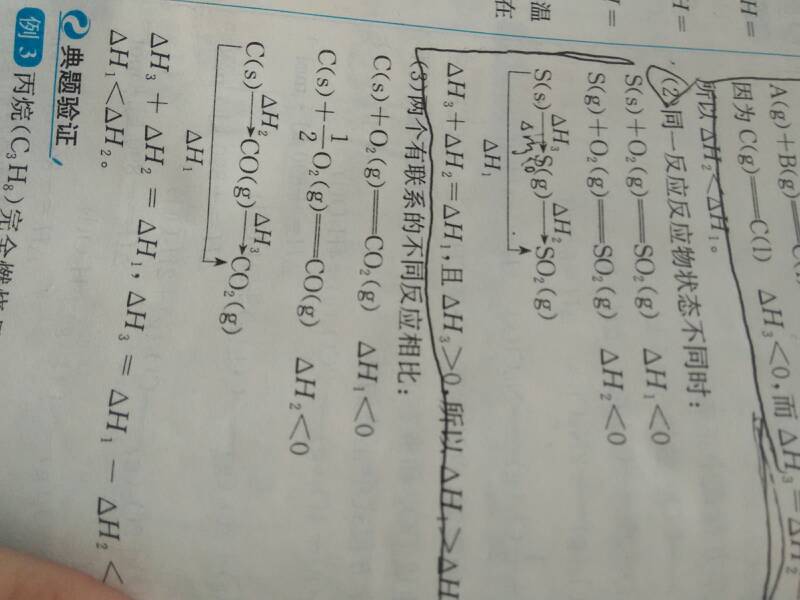 H=
H=
温
在
A(g)+B(g)
因为 C(g)══C(l) ΔH₃<0,而 ΔH₃=ΔH₂
所以 ΔH₂<ΔH₁。
(2)同一反应反应物状态不同时:
S(s)+O₂(g)══SO₂(g) ΔH₁<0
S(g)+O₂(g)══SO₂(g) ΔH₂<0
ΔH₃ ΔH₂
S(s)→S(g)→SO₂(g)
ΔH₁
ΔH₃+ΔH₂=ΔH₁,且 ΔH₃>0,所以 ΔH₁>ΔH
(3)两个有联系的不同反应相比:
C(s)+O₂(g)══CO₂(g) ΔH₁<0
C(s)+1/2O₂(g)══CO(g) ΔH₂<0
ΔH₂ ΔH₃
C(s)→CO(g)→CO₂(g)
ΔH₁
ΔH₃+ΔH₂=ΔH₁,ΔH₃=ΔH₁-ΔH₂<
ΔH₁<ΔH₂。
典题验证
例3 丙烷(C₃H₈)完全燃烧